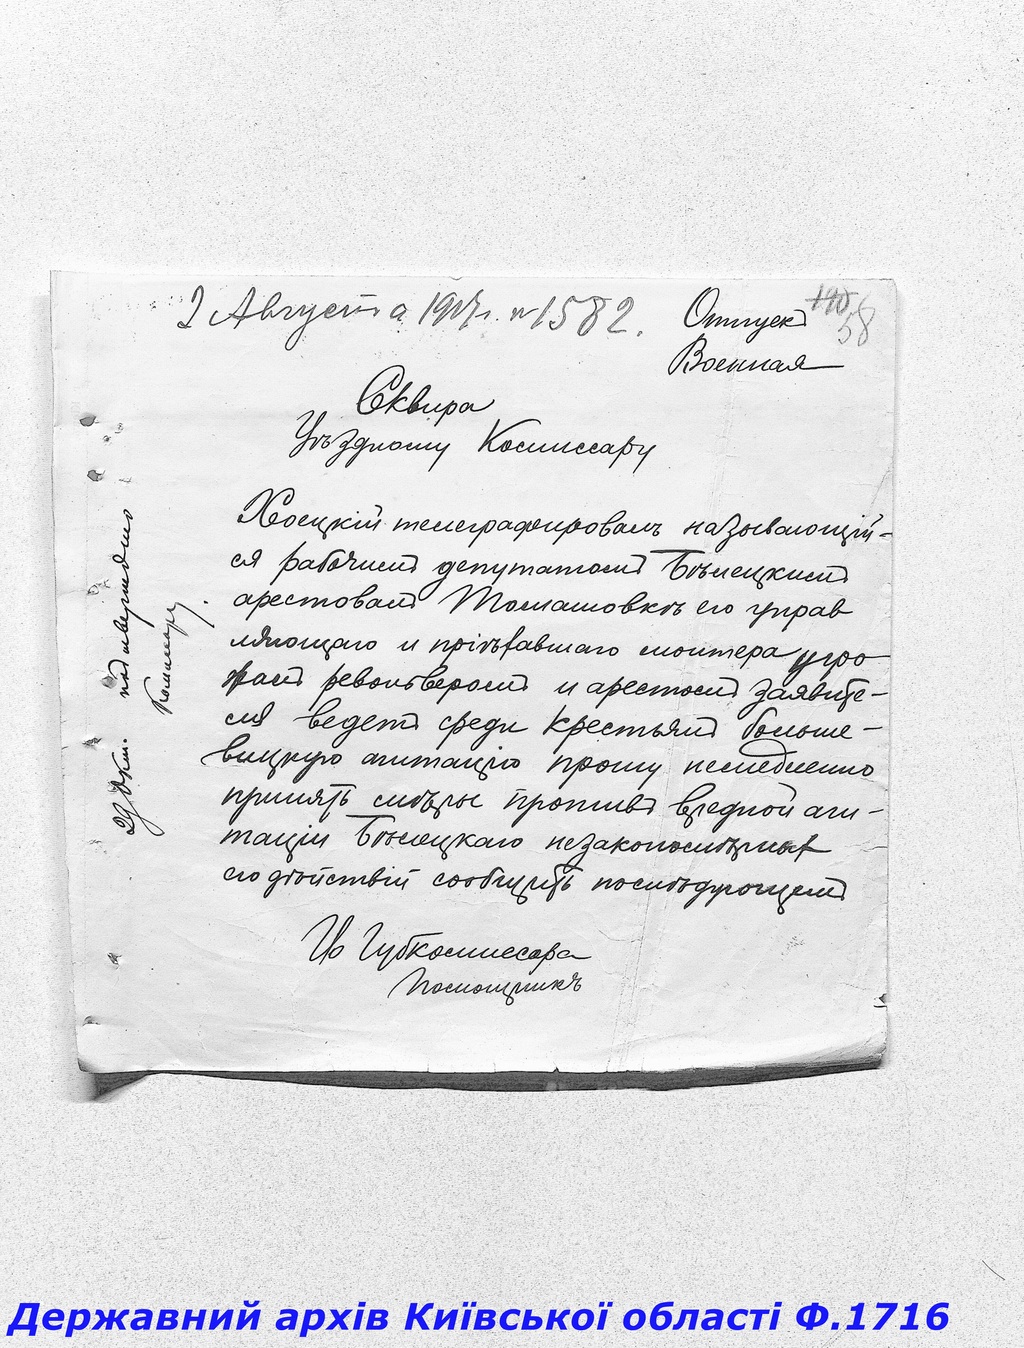 2 Августа 1917 г. № 1582.
Отпуск
190
58
Военная
Сквира
Уѣздному Комиссару
Хоецкій телеграфировалъ называющій-
ся рабочим депутатом Бѣлецким
арестовал Томашовкѣ его управ
ляющаго и пріѣхавшаго монтера угро
жал револьвером и арестом заявите-
ля ведет среди крестьян больше-
вицкую агитацію прошу немедленно
принять мѣры против вредной аги-
таціи Бѣлецкаго незакономѣрных
его дѣйствій сообщить послѣдующем
Ио Губкомиссара
Помощникъ
29 Окт. подтверждено
Комиссару.
Державний архів Київської області Ф.1716